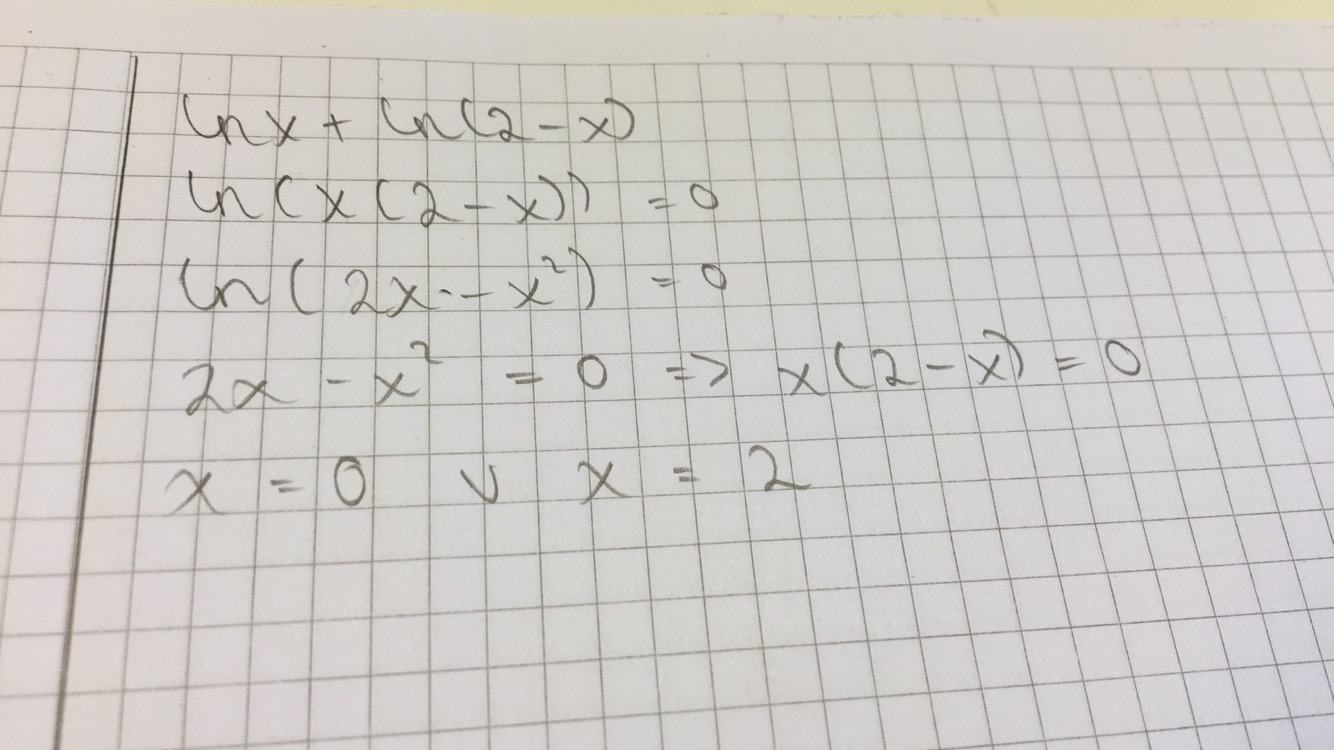 ln x + ln(2 - x)
ln(x(2 - x)) = 0
ln(2x - x²) = 0
2x - x² = 0 => x(2 - x) = 0
x = 0 ∨ x = 2